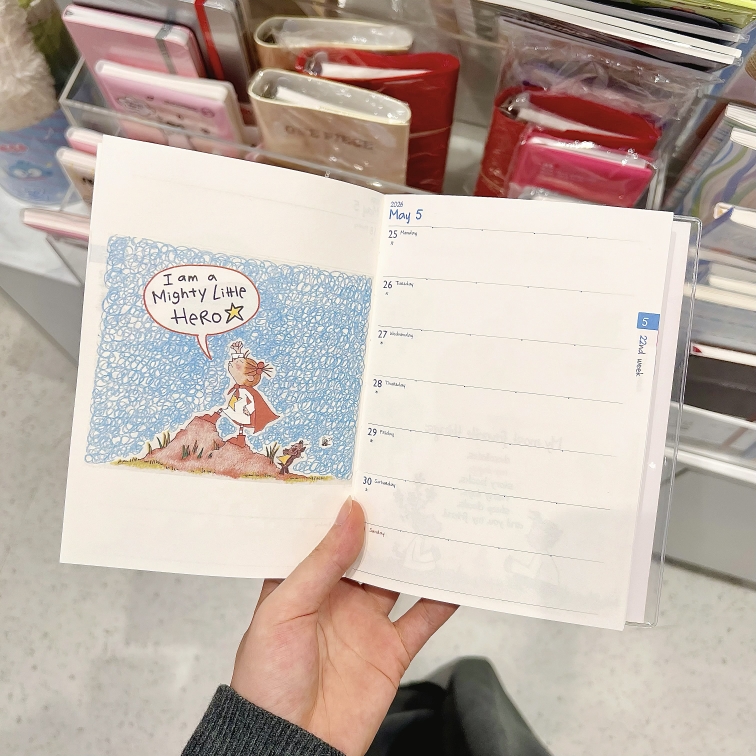 ONE PIECE
I am a
Mighty Little
HeRo
2026
May 5
25 Monday
26 Tuesday
27 Wednesday
28 Thursday
29 Friday
30 Saturday
Sunday
5
22nd week